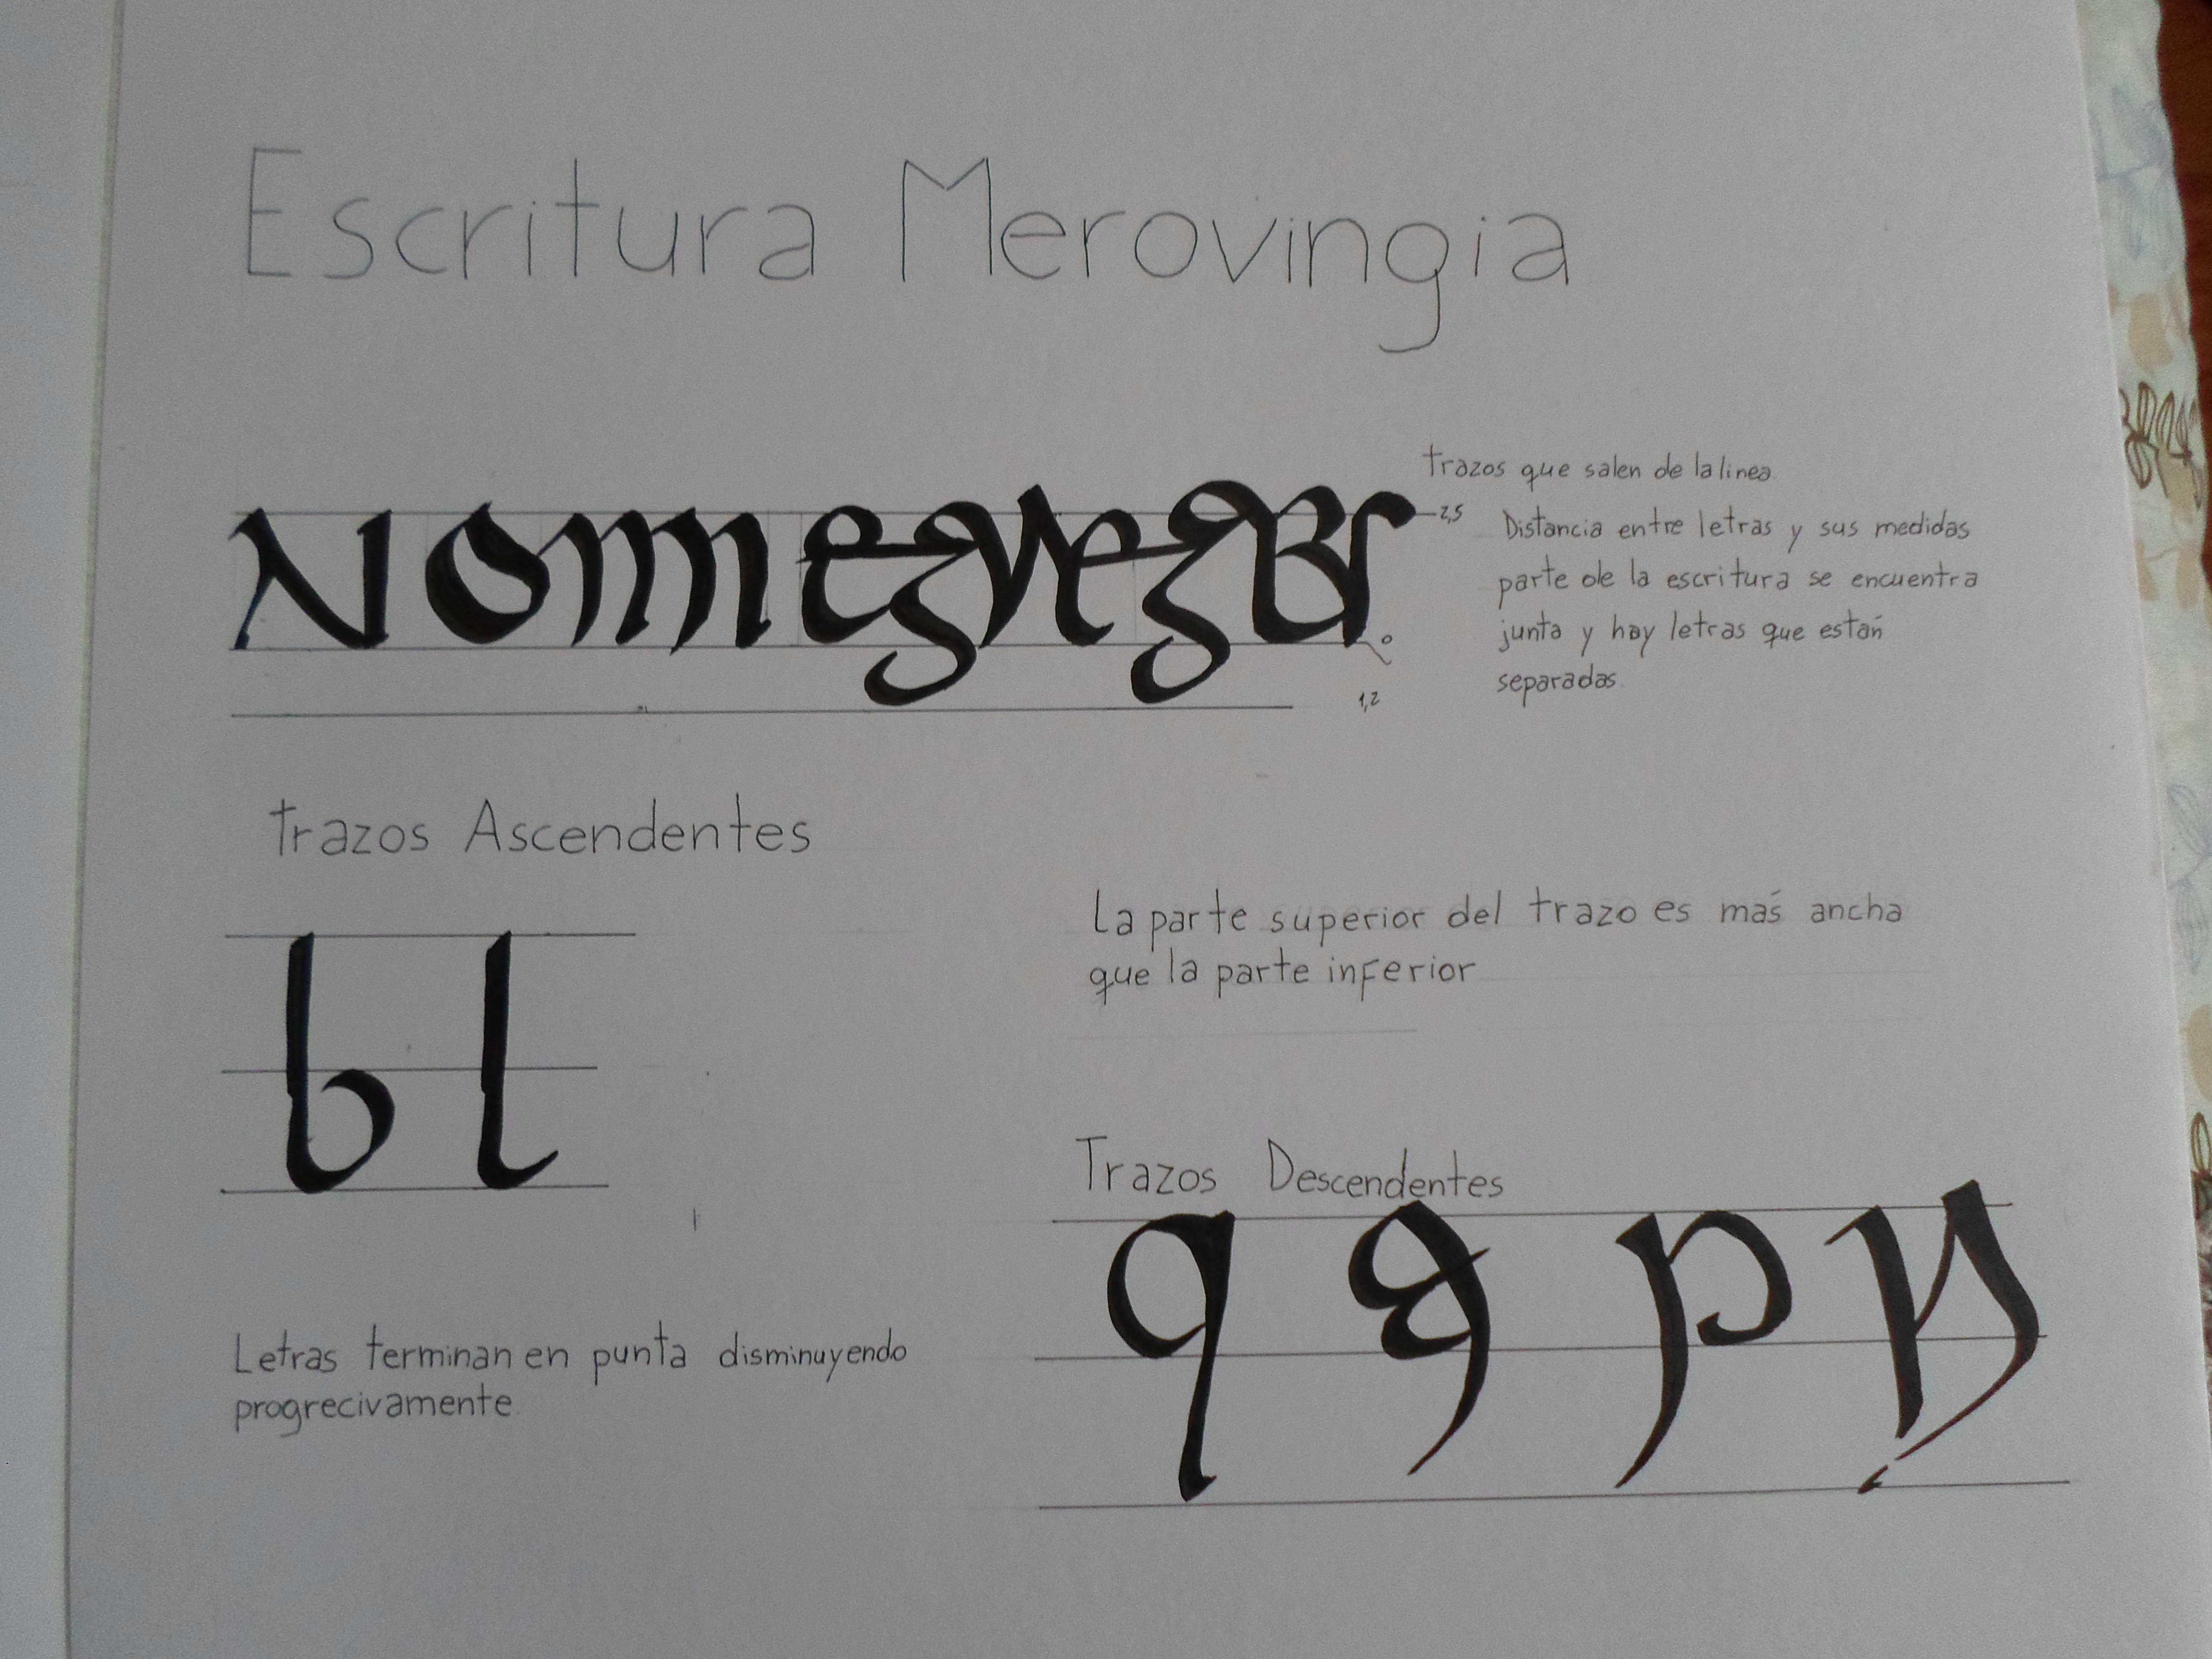 Escritura Merovingia
trazos que salen de la linea
2,5
Distancia entre letras y sus medidas
parte de la escritura se encuentra
junta y hay letras que están
separadas.
0
1,2
Trazos Ascendentes
b l
La parte superior del trazo es más ancha
que la parte inferior
Trazos Descendentes
q g p
Letras terminan en punta disminuyendo
progrecivamente.